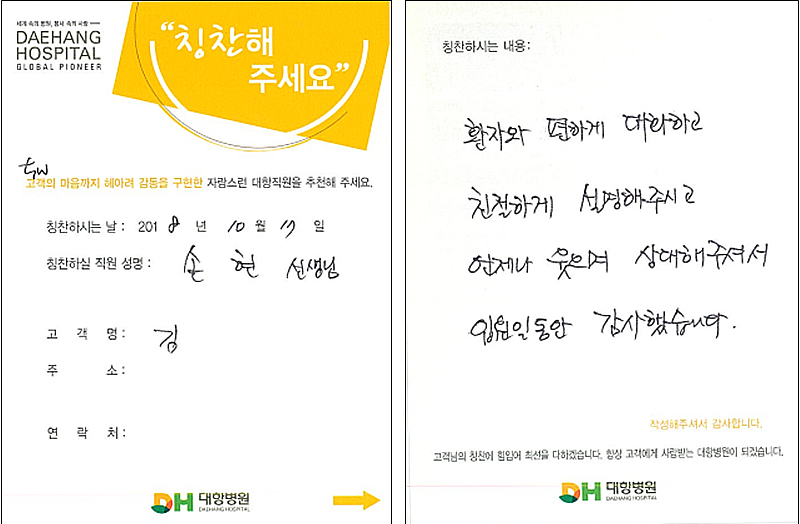 세계 속의 병원, 봉사 속의 사랑
DAEHANG
HOSPITAL
GLOBAL PIONEER
“칭찬해
주세요”
고객의 마음까지 헤아려 감동을 구현한 자랑스런 대항직원을 추천해 주세요.
칭찬하시는 날 : 2018 년 10 월 17 일
칭찬하실 직원 성명 : 손 현 선생님
고 객 명 : 김
주 소 :
연 락 처 :
DH 대항병원
DAEHANG HOSPITAL
칭찬하시는 내용:
환자와 편하게 대화하고
친절하게 설명해주시고
언제나 웃으며 상대해주셔서
입원일동안 감사했습니다.
작성해주셔서 감사합니다.
고객님의 칭찬에 힘입어 최선을 다하겠습니다. 항상 고객에게 사랑받는 대항병원이 되겠습니다.
DH 대항병원
DAEHANG HOSPITAL